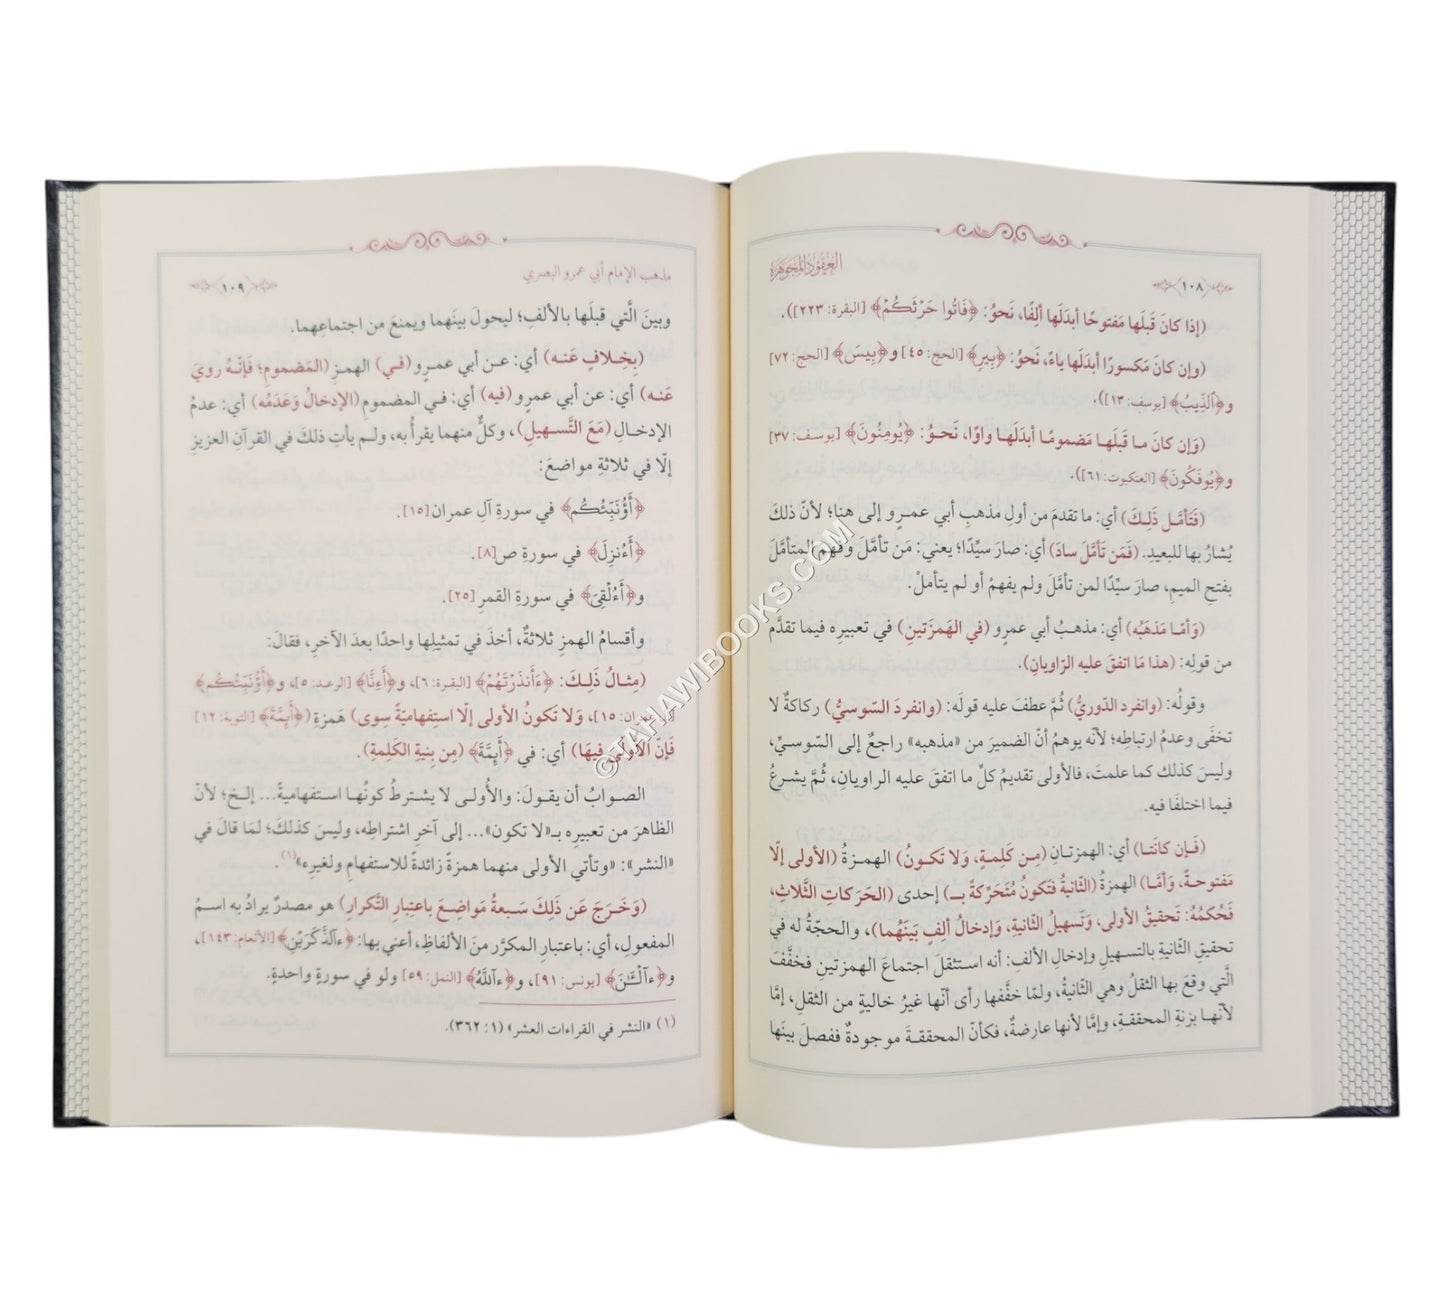 العقود المجوهرة
١٠٨
(إذا كانَ قَبلَها مَفتوحًا أبدَلَها ألِفًا، نَحوُ: ﴿فَاتُوا حَرْثَكُمْ﴾ [البقرة: ٢٢٣]).
(وإن كانَ مَكسورًا أبدَلَها ياءً، نَحوُ: ﴿بِيرِ﴾ [الحج: ٤٥] و﴿بِيسَ﴾ [الحج: ٧٢]
و﴿ٱلذِّيبُ﴾ [يوسف: ١٣]).
(وَإن كانَ ما قبلَها مَضمومًا أبدَلَها واوًا، نَحوُ: ﴿يُومِنُونَ﴾ [يوسف: ٣٧]
و﴿يُوفَكُونَ﴾ [العنكبوت: ٦١]).
(فَتَأمَّل ذَلِكَ) أي: ما تقدمَ من أولِ مذهبِ أبي عمرو إلى هنا؛ لأنّ ذلكَ
يُشارُ بها للبعيدِ. (فَمَن تَأمَّلَ سادَ) أي: صارَ سيِّدًا؛ يعني: مَن تأمَّلَ وفهمَ المتأمَّلَ
بفتحِ الميمِ، صارَ سيِّدًا لمن تأمَّلَ ولم يفهمْ أو لم يتأملْ.
(وَأمّا مَذهَبُه) أي: مذهبُ أبي عمرو (في الهَمزَتينِ) في تعبيرِه فيما تقدَّم
من قوله: (هذا مَا اتفقَ عليه الرّاويانِ).
وقولُه: (وانفرد الدّوريُّ) ثُمَّ عطفَ عليه قولَه: (وانفردَ السّوسيُّ) ركاكةٌ لا
تخفَى وعدمُ ارتباطِه؛ لأنّه يوهمُ أنّ الضميرَ من «مذهبه» راجعٌ إلى السّوسيِّ،
وليسَ كذلك كما علمتَ، فالأولى تقديمُ كلِّ ما اتفقَ عليه الراويانِ، ثُمَّ يشرعُ
فيما اختلفَا فيه.
(فَإن كانَتا) أي: الهمزتانِ (مِن كَلِمةٍ، وَلا تَكونُ) الهمزةُ (الأولى إلّا
مَفتوحةً، وَأمَّا) الهمزةُ (الثّانيةُ فتَكونُ مُتَحَرِّكةً بـ) إحدى (الحَرَكاتِ الثَّلاثِ،
فَحُكمُهُ: تَحقيقُ الأولى، وَتَسهيلُ الثّانيةِ، وَإدخالُ ألِفٍ بَينَهُما)، والحجّةُ له في
تحقيقِ الثّانيةِ بالتسهيلِ وإدخالِ الألفِ: أنه استثقلَ اجتماعَ الهمزتينِ فخفَّفَ
الَّتي وقعَ بها الثقلُ وهي الثّانيةُ، ولمّا خفَّفها رأى أنّها غيرُ خاليةٍ من الثقلِ، إمَّا
لأنّها بزنةِ المحققةِ، وإمَّا لأنها عارضةٌ، فكأنّ المحققةَ موجودةٌ ففصلَ بينَها
مذهب الإمام أبي عمرو البصري
١٠٩
وبينَ الَّتي قبلَها بالألفِ؛ ليحولَ بينَهما ويمنعَ من اجتماعِهما.
(بِخِلافٍ عَنه) أي: عن أبي عمرٍو (في) الهمزِ (المَضمومِ؛ فَإنّهُ رويَ
عَنه) أي: عن أبي عمرٍو (فيه) أي: في المضمومِ (الإدخالُ وَعَدَمُه) أي: عدمُ
الإدخالِ (مَعَ التَّسهيلِ)، وكلٌّ منهما يقرأُ به، ولم يأتِ ذلكَ في القرآنِ العزيزِ
إلّا في ثلاثةِ مواضعَ:
﴿أَؤُنَبِّئُكُم﴾ في سورةِ آلِ عمران [١٥].
﴿أَءُنزِلَ﴾ في سورةِ ص [٨].
و﴿أَءُلْقِيَ﴾ في سورةِ القمرِ [٢٥].
وأقسامُ الهمزِ ثلاثةٌ، أخذَ في تمثيلِها واحدًا بعدَ الآخرِ، فقالَ:
(مِثالُ ذَلِكَ: ﴿ءَأَنذَرْتَهُمْ﴾ [البقرة: ٦]، و﴿أَءِنَّا﴾ [الرعد: ٥]، و﴿أَؤُنَبِّئُكُم﴾
عمران: ١٥]، وَلا تَكونُ الأولى إلّا استفهاميّةً سِوى) هَمزةِ (﴿أَئِمَّةَ﴾ [التوبة: ١٢]
فَإنّ الأولى فيهَا) أي: في ﴿أَئِمَّةَ﴾ (مِن بِنيةِ الكَلِمةِ).
الصوابُ أن يقولَ: والأُولى لا يشترطُ كونُها استفهاميةً... إلخ؛ لأنّ
الظاهرَ من تعبيرِه بـ«لا تكون»... إلى آخرِ اشتراطِه، وليسَ كذلكَ؛ لمَا قالَ في
«النشر»: «وتأتي الأولى منهما همزةً زائدةً للاستفهامِ ولغيرِه»(١).
(وَخَرَجَ عَن ذَلِكَ سَبعةُ مَواضِعَ باعتِبارِ التَّكرارِ) هو مصدرٌ يرادُ به اسمُ
المفعولِ، أي: باعتبارِ المكرَّرِ منَ الألفاظِ، أعني بها: ﴿ءَآلذَّكَرَيْنِ﴾ [الأنعام: ١٤٣]،
و﴿ءَآلْـَٰٔنَ﴾ [يونس: ٩١]، و﴿ءَآللَّهُ﴾ [النمل: ٥٩] ولو في سورةٍ واحدةٍ.
(١) «النشر في القراءات العشر» (١: ٣٦٢).
©TAHAWIBOOKS.COM